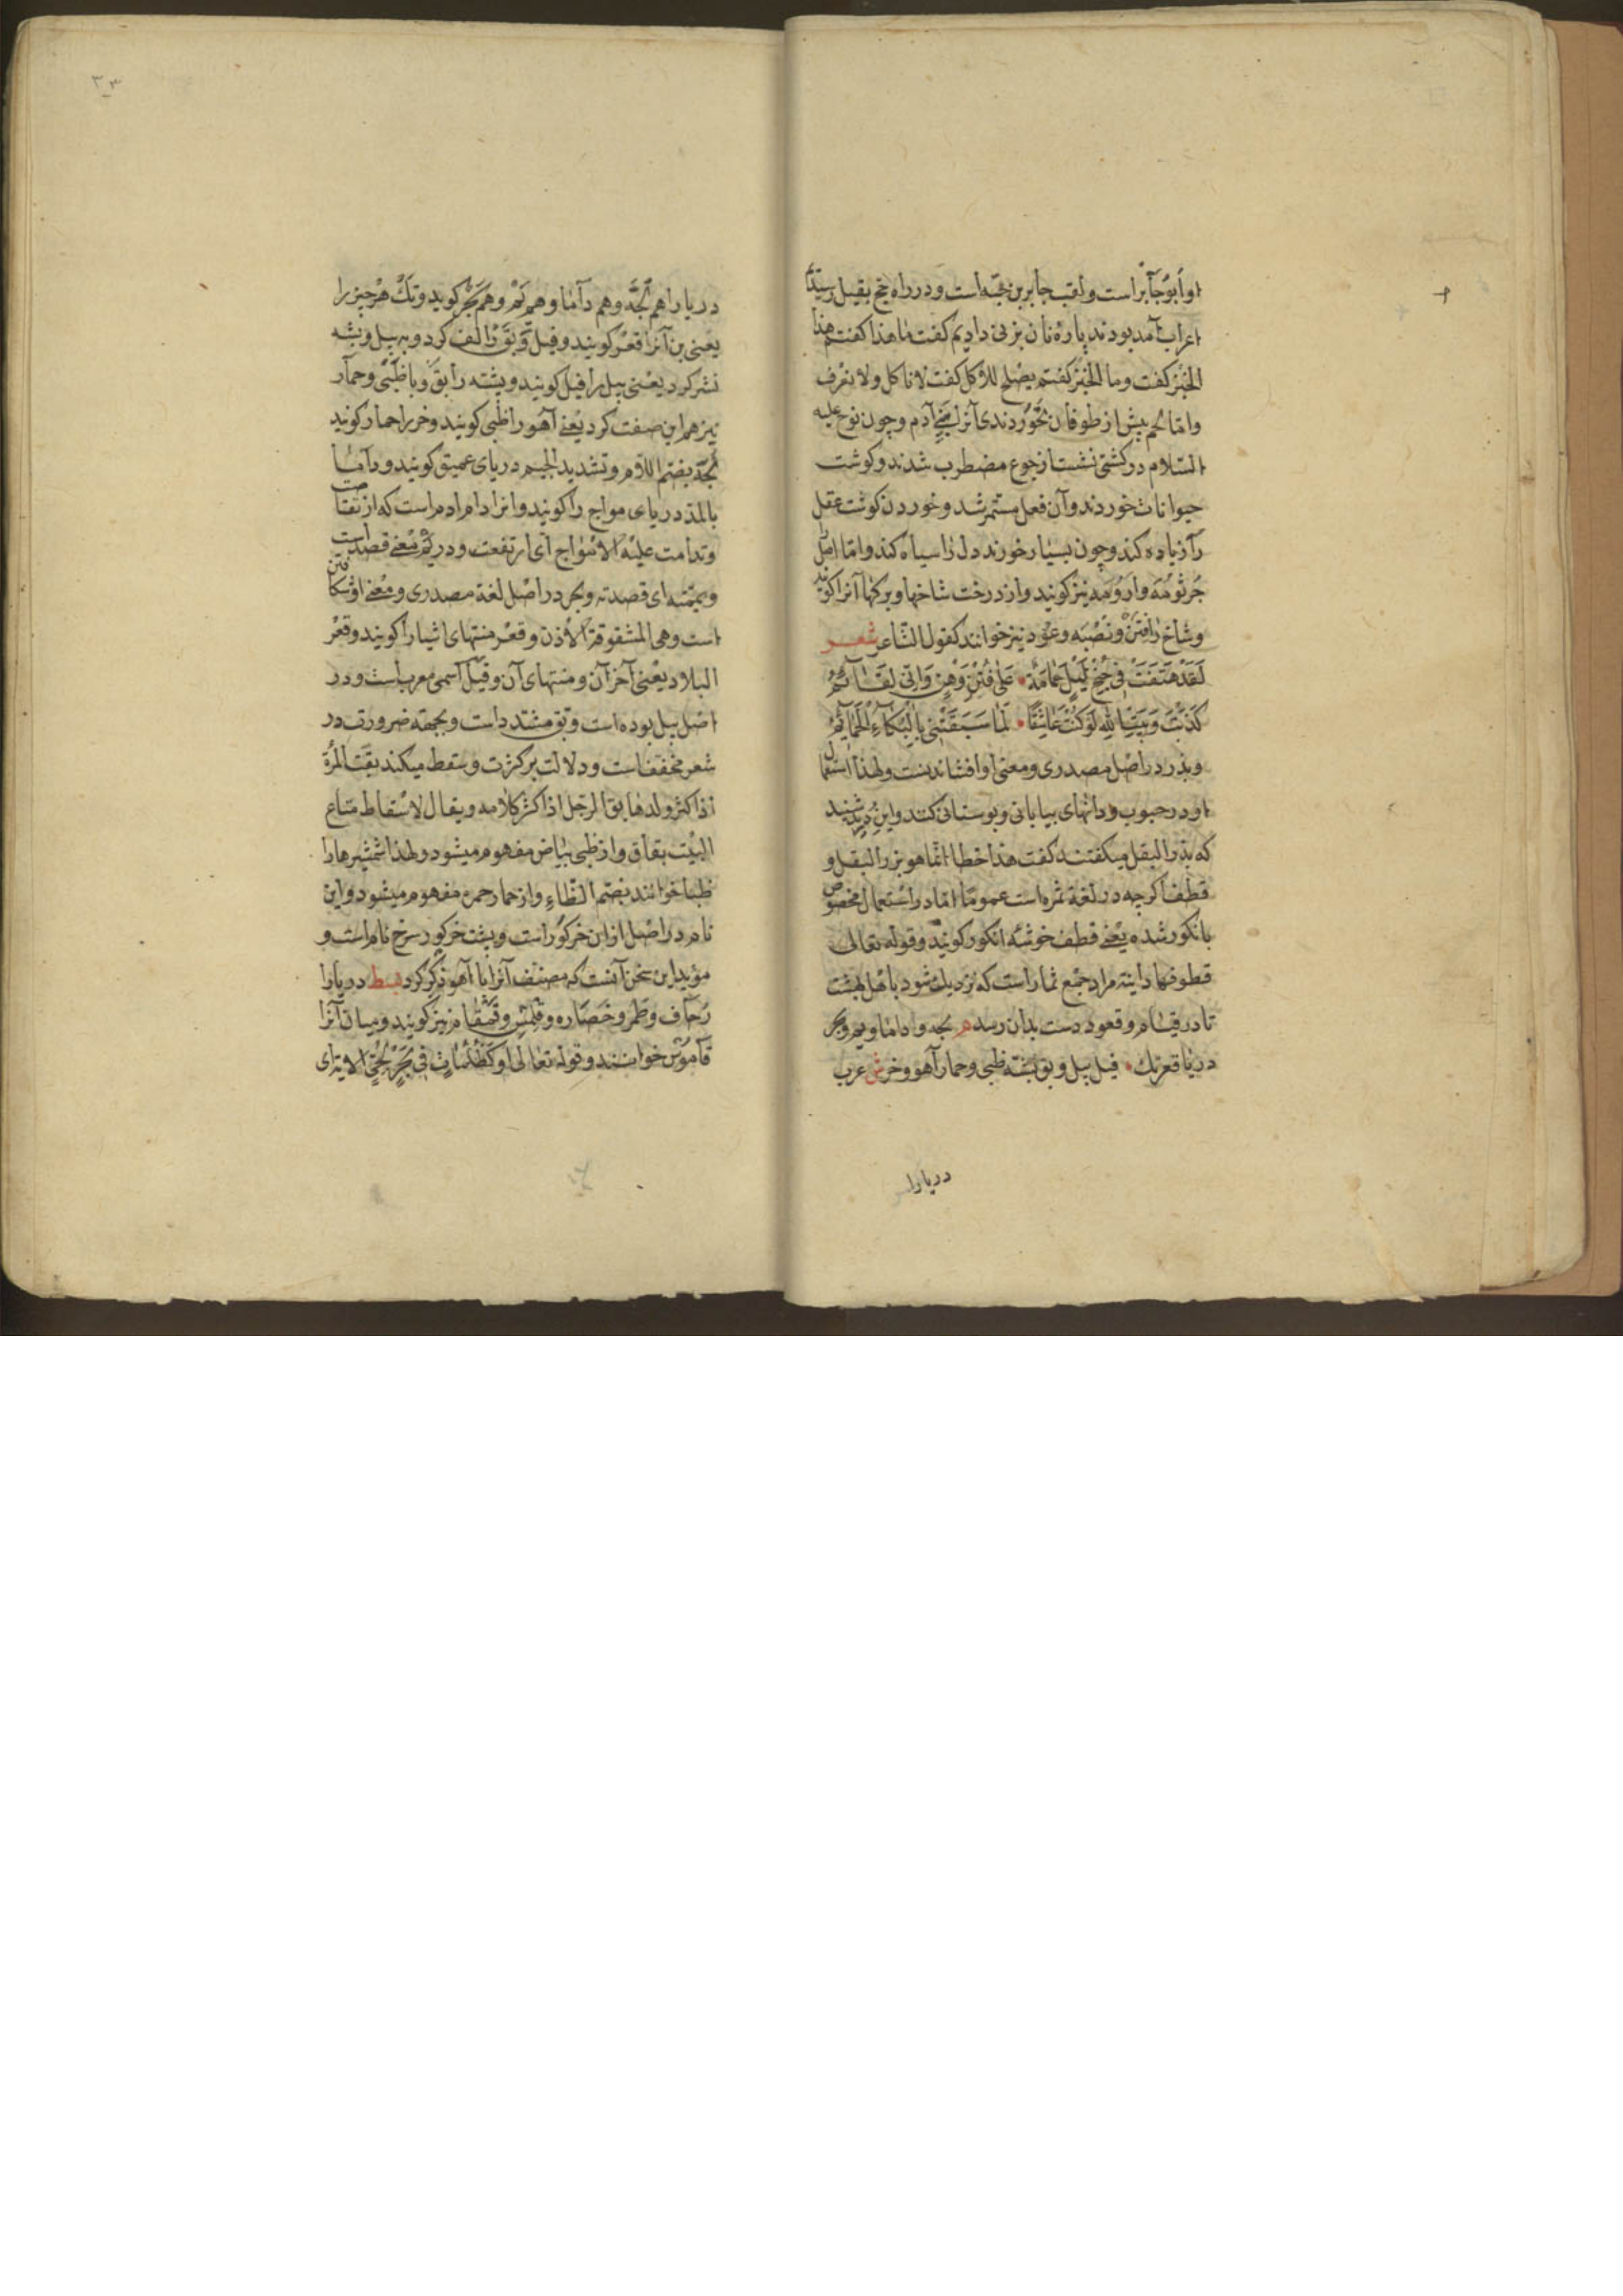 او ابوجابر است ولقب جابر بن حبّه است و در راه حج بقبیل رسیدم
اعراب آمد بودند پارهٔ نان بزنی دادیم کفت ما هذا کفتم هذا
الخبز کفت وما الخبز کفتم یصلح للاکل کفت لا ناکل ولا نعرف
وامّا لحم پیش از طوفان نخوردندی آنرا بنی آدم و چون نوح علیه
السّلام در کشتی نشست از جوع مضطرب شدند و کوشت
حیوانات خوردند و آن فعل مستمر شد و خوردن کوشت عقل
را زیاده کند و چون بسیار خورند دل را سیاه کند و امّا اصل را
جرثومه وارومه نیز کویند و از درخت شاخها و برکها آنرا کویند
و شاخ را فنن و نصبه و عود نیز خوانند کقول الشّاعر شعر
لَقَدْ هَتَفَتْ فی جُنْحِ لَیْلٍ حَمامَةٌ علی فَنَنٍ وَهْنٍ وَاِنّی لَنَائمُ
کَذَبْتُ وَبَیْتِ اللهِ لَوْ کُنْتُ عَاشِقًا لَمَا سَبَقَتْنِی بِالْبُکَاءِ الْحَمَائِمُ
وبذر در اصل مصدری و معنی او افشاندنست و لهذا استعمال
او در حبوب و دانهای بیابانی و بوستانی کنند و ابن درید شنید
که بذر البقل میکفتند کفت هذا خطا انّما هو بزر البقل و
قطف اکرچه در لغة ثمره است عمومًا امّا در استعمال مخصوص
بانکور شده یعنی قطف خوشهٔ انکور کویند و قوله تعالی
قطوفها دانیة مراد جمع ثمار است که نزدیک شود باهل بهشت
تا در قیام و قعود دست بدان رسد م لجه و داما و یم و بحر
دریا قعر تک فیل پیل و بق پشه ظبی و حمار آهو و خر ش عرب
دریارا
٣٣
دریا را هم لُجَّه وهم دآما وهم یَمْ وهم بَحْر کوید و تک هر چیز را
یعنی بن آنرا قعر کویند و فیل و بق را لف کرد و به پیل و پشه
نشر کرد یعنی پیل را فیل کویند و پشته را بق و با ظبی و حمار
نیز هم این صفت کرد یعنی آهو را ظبی کویند و خر را حمار کویند
لُجّه بضم اللّام و تشدید الجیم دریای عمیق کویند و دآما
بالمد دریای مواج را کویند وانرا دام ادم است که از تقتا
وتدامت علیه الامواج ای ارتفعت و در یم معنی قصد است
ویمّمته ای قصدته و بحر در اصل لغة مصدری و معنی او شکافتن
است وهی المشقوقة الاذن و قعر منتهای اشیا را کویند و قعر
البلاد یعنی آخر آن و منتهای آن و فیل اسمی معرب است و در
اصل پیل بوده است و بق مشدد است و بجهة ضرورت در
شعر مخفف است و دلالت بر کثرت و سقط میکند بقّت المرأة
اذا کثر ولدها بق الرجل اذا کثر کلامه ویقال لاسقاط متاع
البیت بقاق و از ظبی بیاض مفهوم میشود ولهذا شمشیرها را
ظبا خوانند بضم الظّاء و از حمار حمره مفهوم میشود و این
نام در اصل از ان خر کور است و پشت خر کور سرخ نام است و
مؤید این سخن آنست که مصنف آنرا با آهو ذکر کرد بسط دریا را
رجاف و طَمر و خضاره و قلمس و قمقام نیز کویند و میان آنرا
قاموس خوانند و قوله تعالی او کظلمات فی بحر لجّی الایة ای